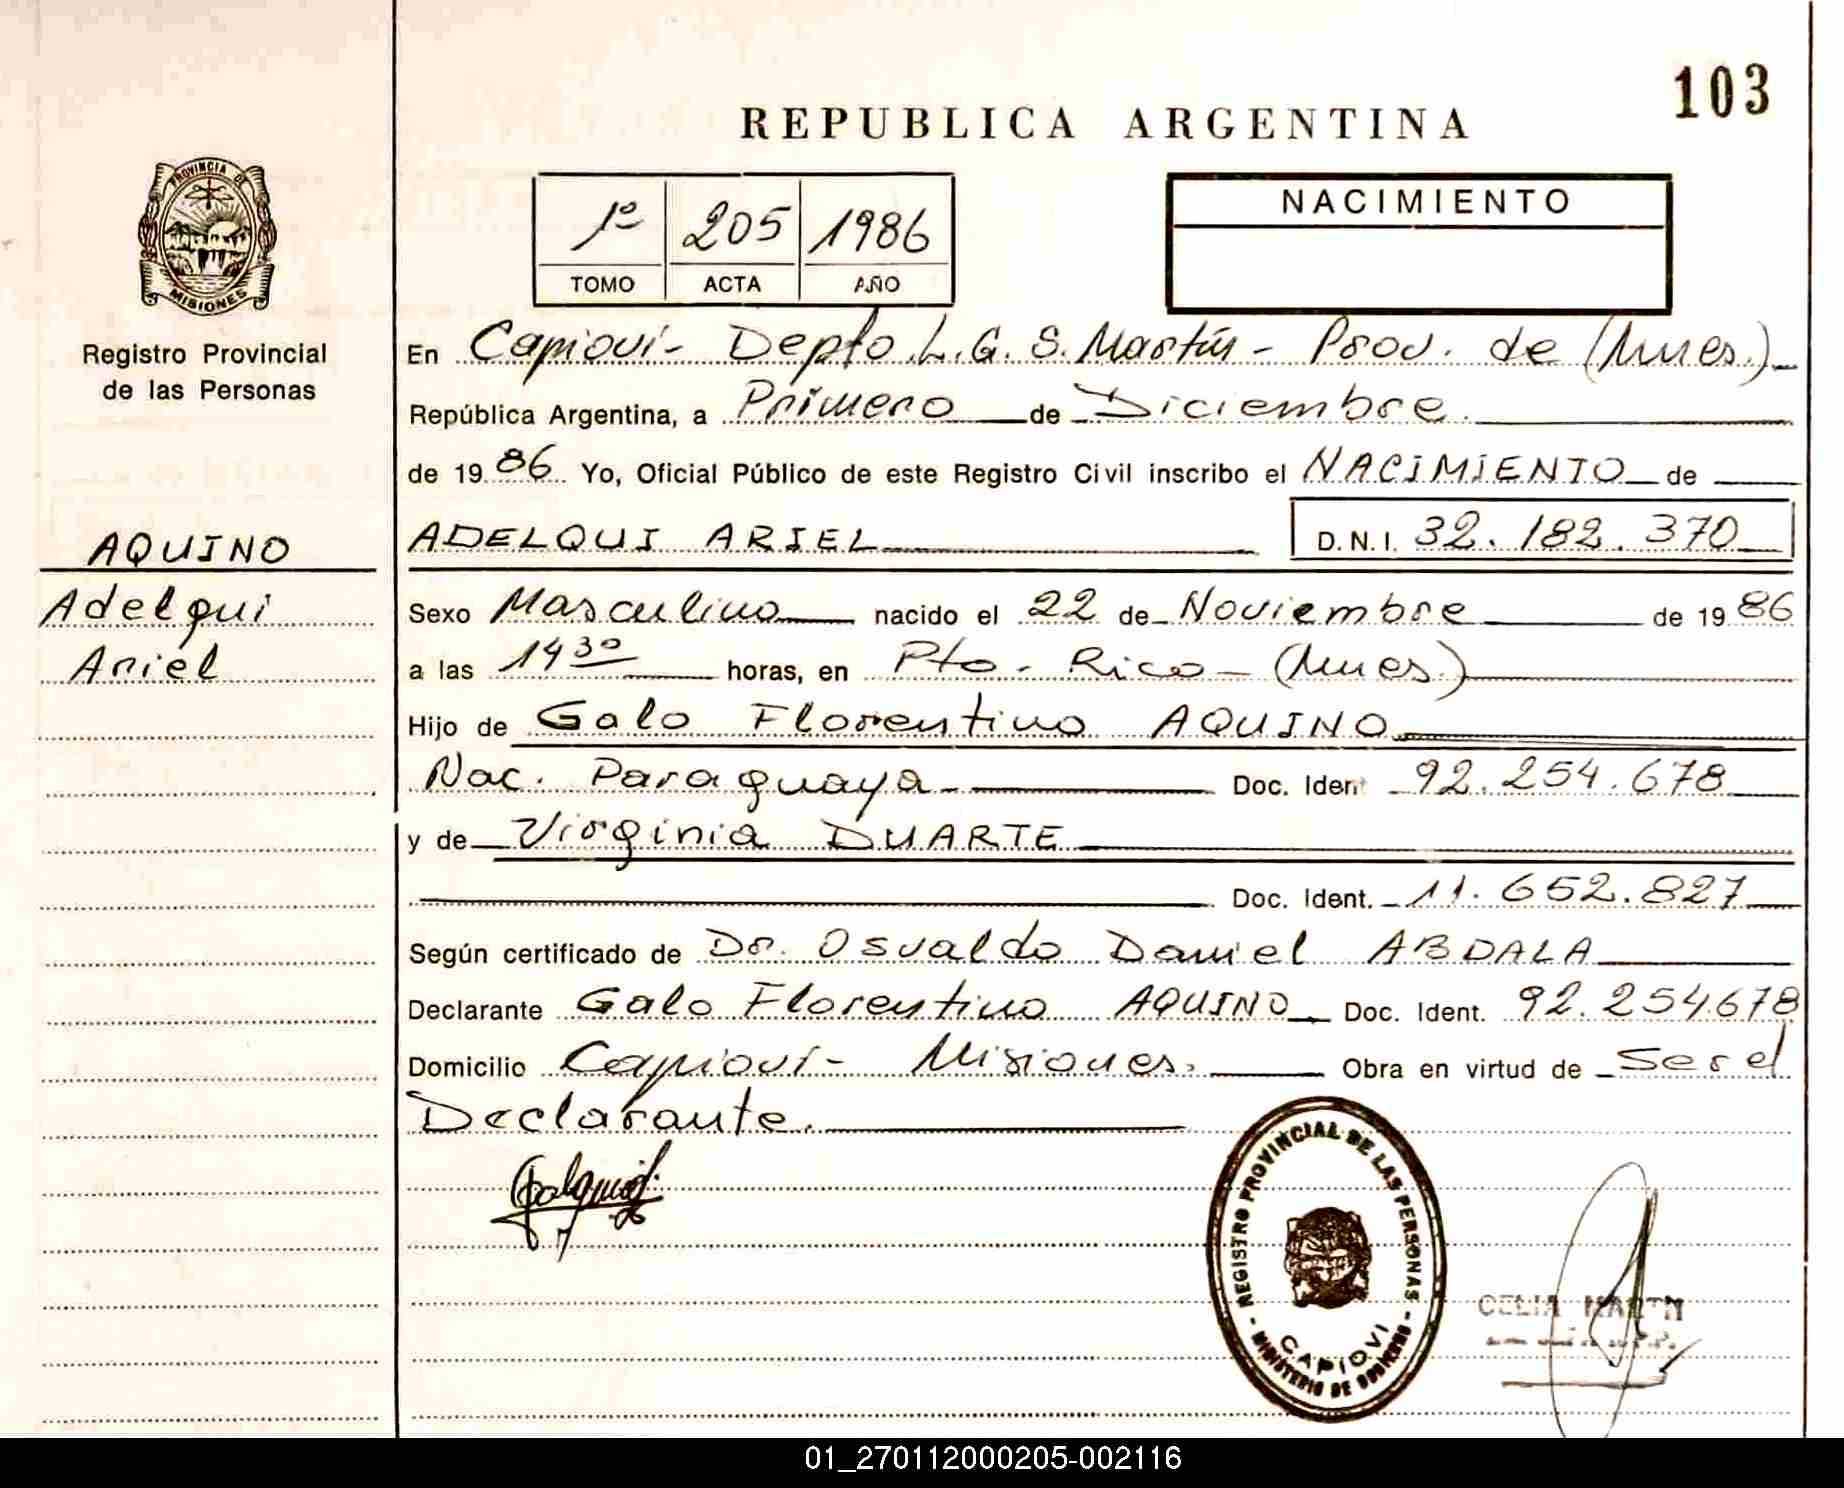 103
REPUBLICA ARGENTINA
PROVINCIA DE
MISIONES
Registro Provincial
de las Personas
1º 205 1986
TOMO ACTA AÑO
NACIMIENTO
En Capioví - Depto L.G.S. Martín - Prov. de (Mnes.)
República Argentina, a Primero de Diciembre
de 1986 Yo, Oficial Público de este Registro Civil inscribo el NACIMIENTO de
ADELQUI ARIEL D.N.I. 32.182.370
AQUINO
Adelqui
Ariel
Sexo Masculino nacido el 22 de Noviembre de 1986
a las 14 30 horas, en Pto. Rico - (Mnes.)
Hijo de Galo Florentino AQUINO
Nac. Paraguaya - Doc. Ident 92.254.678
y de Virginia DUARTE
Doc. Ident. 11.652.827
Según certificado de Dr. Osvaldo Daniel ABDALA
Declarante Galo Florentino AQUINO Doc. Ident. 92.254.678
Domicilio Capioví - Misiones. Obra en virtud de Ser el
Declarante.
REGISTRO PROVINCIAL DE LAS PERSONAS
CAPIOVI
MINISTERIO DE GOBIERNO
CELIA
01_270112000205-002116